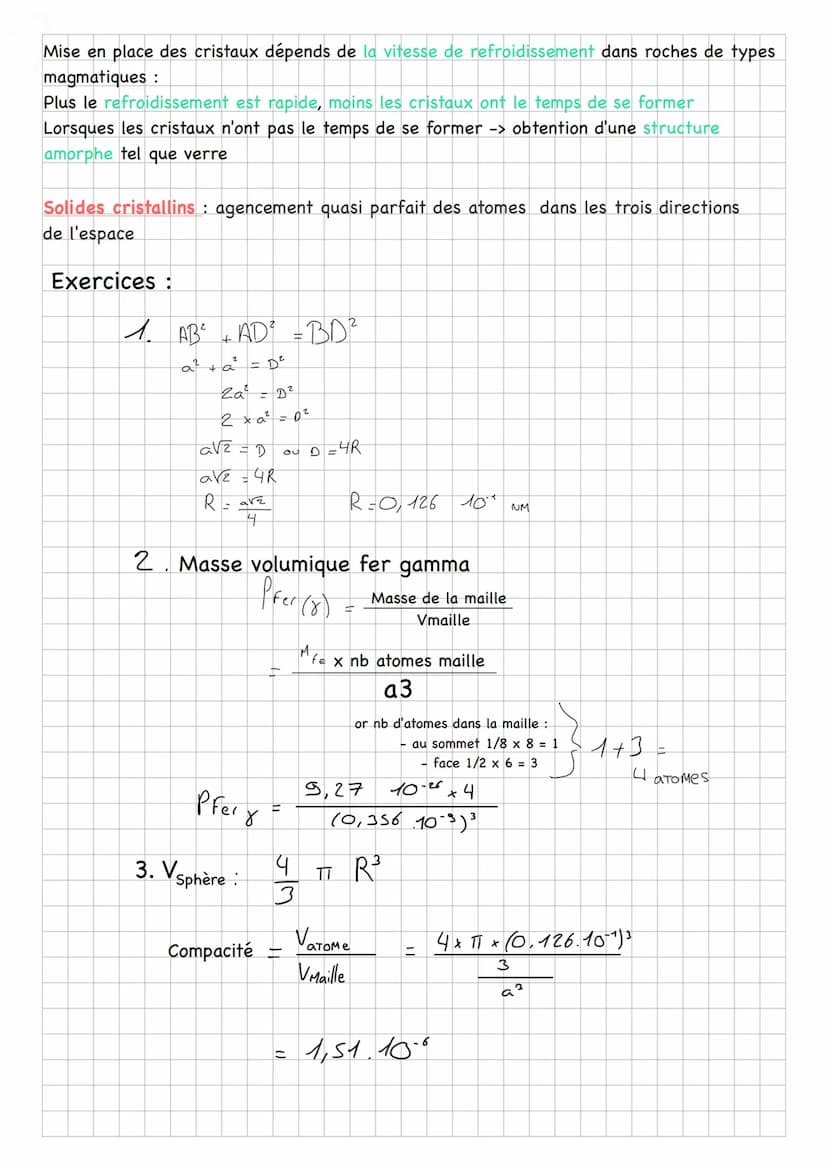 Mise en place des cristaux dépends de la vitesse de refroidissement dans roches de types
magmatiques :
Plus le refroidissement est rapide, moins les cristaux ont le temps de se former
Lorsques les cristaux n'ont pas le temps de se former -> obtention d'une structure
amorphe tel que verre
Solides cristallins : agencement quasi parfait des atomes dans les trois directions
de l'espace
Exercices :
1. AB² + AD² = BD²
a² + a² = D²
2a² = D²
2 × a² = D²
a√2 = D ou D = 4R
a√2 = 4R
R = a√2 / 4 R = 0,126 10⁻¹ NM
2 . Masse volumique fer gamma
ρFer(γ) = Masse de la maille / Vmaille
= Mfe x nb atomes maille / a3
or nb d'atomes dans la maille :
- au sommet 1/8 x 8 = 1
- face 1/2 x 6 = 3
1 + 3 =
4 ATOMES
ρFer γ = 9,27 10⁻²⁶ × 4 / (0,356 .10⁻⁹)³
3. VSphère : 4/3 π R³
Compacité = VATOME / VMaille = 4 × π × (0,126.10⁻¹)³ / 3 / a³
= 1,51.10⁻⁶